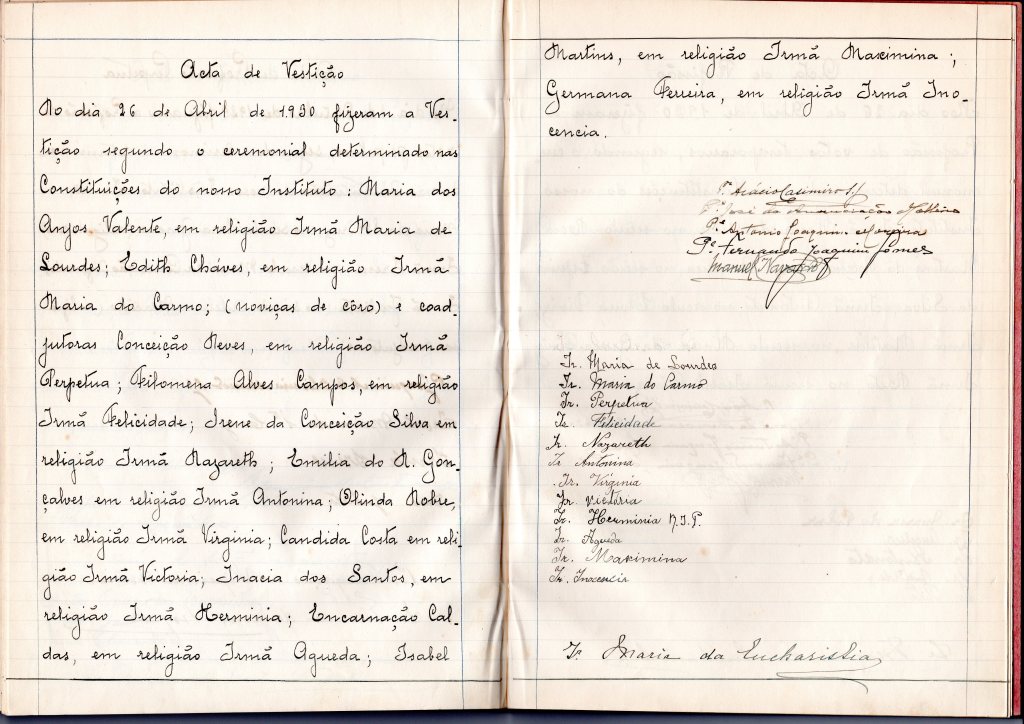 Acta de Vestição
No dia 26 de Abril de 1.930 fizeram a Ves-
tição segundo o ceremonial determinado nas
Constituições do nosso Instituto: Maria dos
Anjos Valente, em religião Irmã Maria de
Lourdes; Edith Cháves, em religião Irmã
Maria do Carmo; (noviças de côro) e coad-
jutoras Conceição Neves, em religião Irmã
Perpetua; Filomena Alves Campos, em religião
Irmã Felicidade; Irene da Conceição Silva em
religião Irmã Nazareth; Emilia do N. Gon-
çalves em religião Irmã Antonina; Olinda Nobre,
em religião Irmã Virginia; Candida Costa em reli-
gião Irmã Victoria; Inacia dos Santos, em
religião Irmã Herminia; Encarnação Cal-
das, em religião Irmã Agueda; Isabel
Martins, em religião Irmã Maximina;
Germana Ferreira, em religião Irmã Ino-
cencia.
P. Acácio Casimiro S.J.
P.e José da Annunciação
P.e Antonio Joaquim Moreira
P.e Fernando Joaquim Gomes
Manuel
Ir. Maria de Lourdes
Ir. Maria do Carmo
Ir. Perpetua
Ir. Felicidade
Ir. Nazareth
Ir Antonina
Ir. Virginia
Ir victória
Ir. Herminia N.J.P.
Ir. Agueda
Ir. Maximina
Ir. Inocencia
Ir Maria da Eucharistia